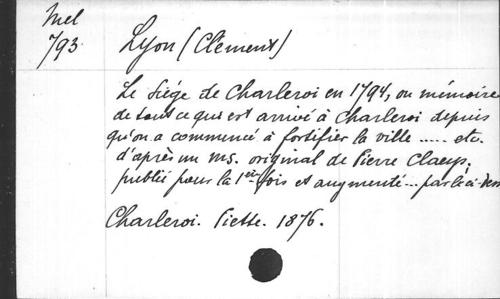 Mel
793
Lyon (Clément)
Le Siége de Charleroi en 1794, ou mémoire
de tout ce qui est arrivé à Charleroi depuis
qu'on a commencé à fortifier la ville ..... etc.
d'après un ms. original de Pierre Claeys.
publié pour la 1ère fois et augmenté ... par le ci-
Charleroi. Piette. 1876.